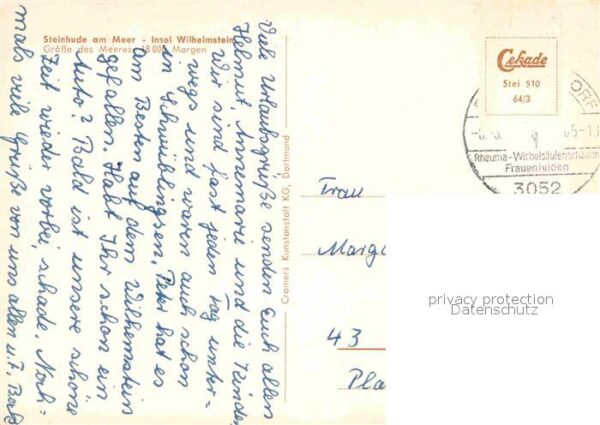 Steinhude am Meer - Insel Wilhelmstein
Größe des Meeres 18000 Morgen
Viele Urlaubsgrüße senden Euch allen
Helmut, Annemarie und die Kinder
Wir sind fast jeden Tag unter-
wegs und waren auch schon
in Schwüblingsen, Peter hat es
am Besten auf dem Wilhemstein
gefallen. Habt Ihr schon ein
Auto? Bald ist unsere schöne
Zeit wieder vorbei, schade. Noch-
mals viele Grüße von uns allen u.f. Bald
Cramers Kunstanstalt KG, Dortmund
Cekade
Stei 510
64/3
ORF
Rheuma-Wirbelsäulenschäden
Frauenleiden
3052
Frau
Marg
43
Pla
privacy protection
Datenschutz